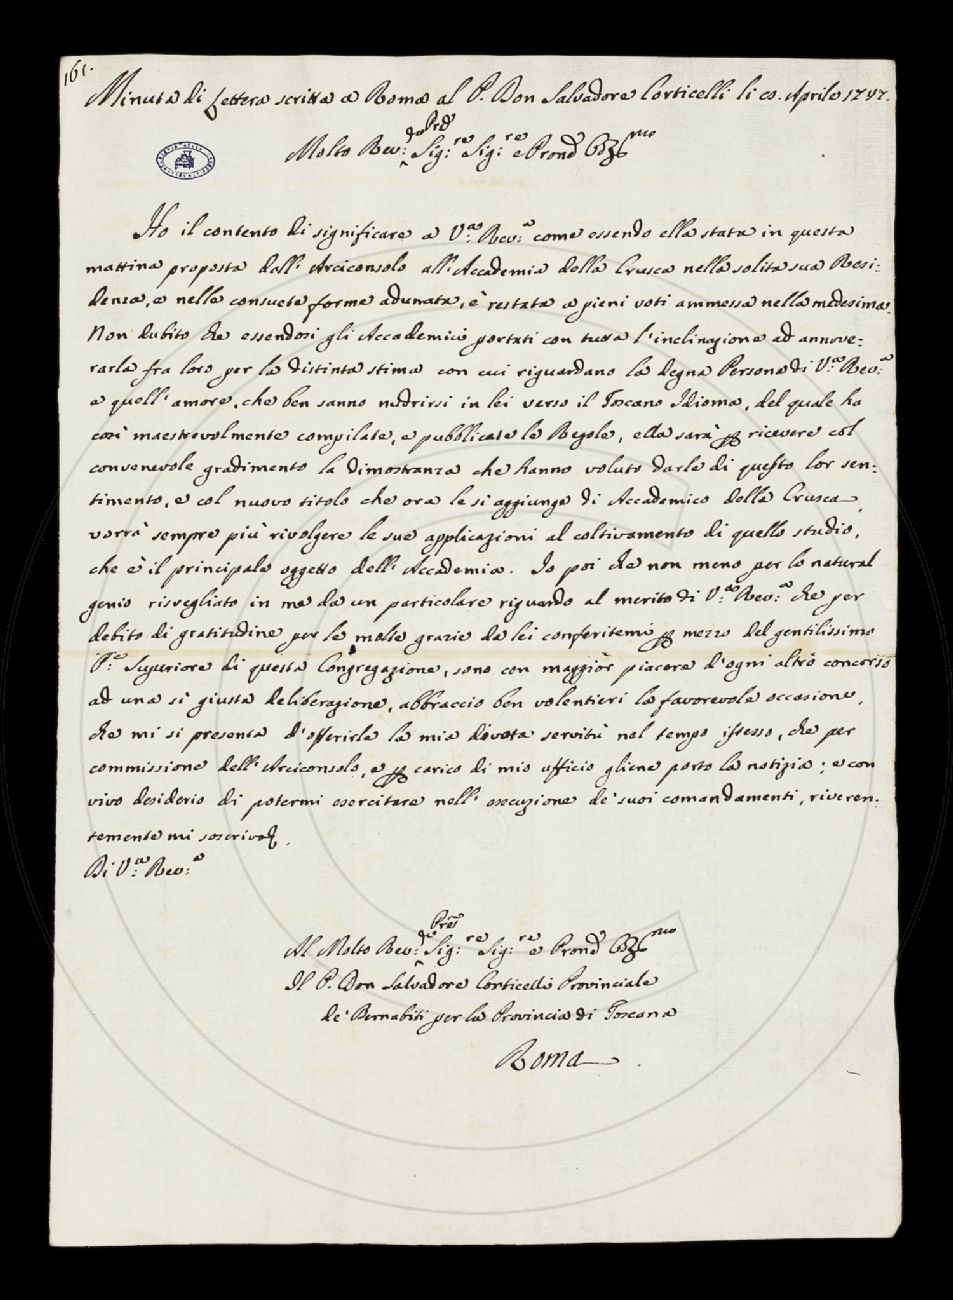 161.
Minuta di Lettera scritta a Roma al P. Don Salvadore Corticelli li 20. Aprile 1747.
Molto Rev:do Sig:re Sig:re e Pron̄
Ho il contento di significare a V:ra Rev:a come essendo ella stata in questa
mattina proposta dall' Arciconsolo all' Accademia della Crusca nella solita sua Resi:
denza, e nella consueta forma adunata, è restata a pieni voti ammessa nella medesima.
Non dubito che essendosi gli Accademici portati con tutta l'inclinazione ad annove:
rarla fra loro per la distinta stima con cui riguardano la degna Persona di V:ra Rev:a
e quell' amore, che ben sanno nudrirsi in lei verso il Toscano Idioma, del quale ha
così maestrevolmente compilate, e pubblicate le Regole, ella sarà per ricevere col
convenevole gradimento la dimostranza che hanno voluto darle di questo lor sen:
timento, e col nuovo titolo che ora le si aggiunge di Accademico della Crusca,
vorrà sempre più rivolgere le sue applicazioni al coltivamento di quello studio,
che è il principale oggetto dell' Accademia. Io poi che non meno per lo natural
genio risvegliato in me da un particolare riguardo al merito di V:ra Rev:a che per
debito di gratitudine per le molte grazie da lei conferitemi per mezzo del gentilissimo
P:re Superiore di questa Congregazione, sono con maggior piacere d'ogni altro concorso
ad una sì giusta deliberazione, abbraccio ben volentieri la favorevole occasione,
che mi si presenta d'offerirle la mia divota servitù nel tempo istesso, che per
commissione dell' Arciconsolo, e per carico di mio uffizio gliene porto la notizia; e con
vivo desiderio di potermi esercitare nell' esecuzione de' suoi comandamenti, riveren:
temente mi soscrivo
Di V:ra Rev:a
Al Molto Rev:do Pre Sig:re Sig:re e Pron̄
Il P. Don Salvadore Corticelli Provinciale
de' Bernabiti per la Provincia di Toscana
Roma